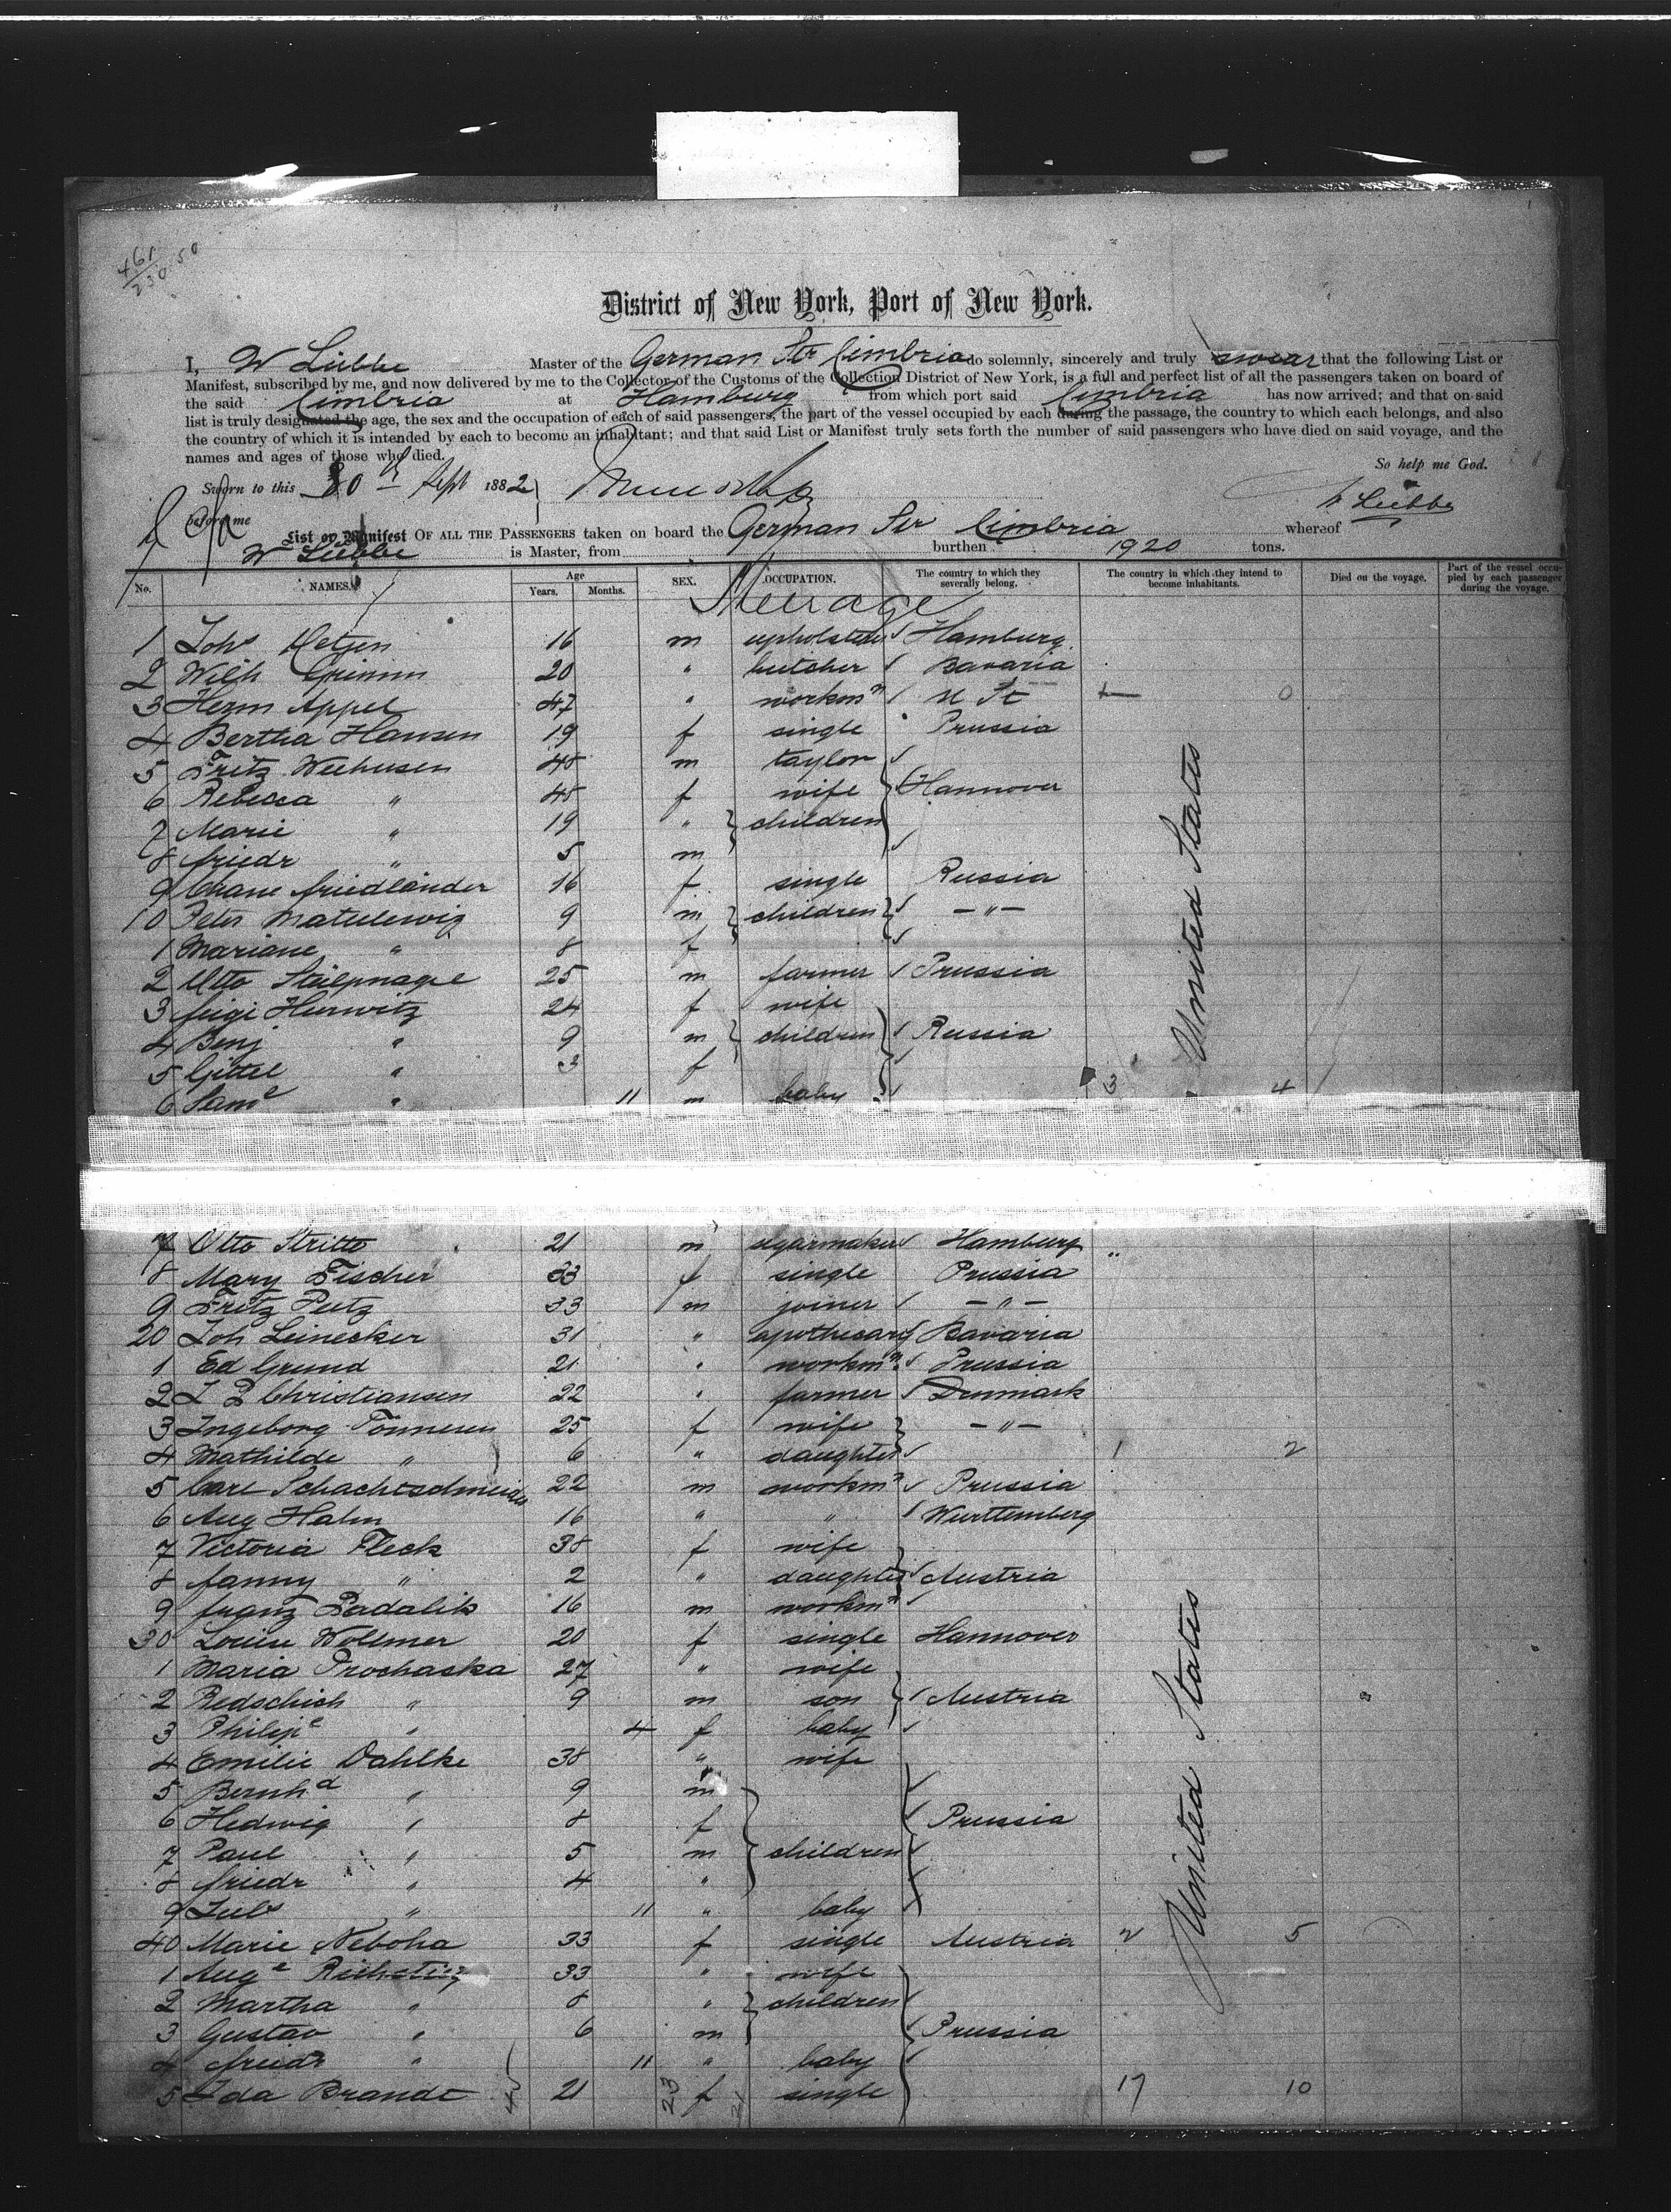 461
230.50
District of New York, Port of New York.
I, W Lübbe Master of the German Str Cimbria do solemnly, sincerely and truly swear that the following List or
Manifest, subscribed by me, and now delivered by me to the Collector of the Customs of the Collection District of New York, is a full and perfect list of all the passengers taken on board of
the said Cimbria at Hamburg from which port said Cimbria has now arrived; and that on said
list is truly designated the age, the sex and the occupation of each of said passengers, the part of the vessel occupied by each during the passage, the country to which each belongs, and also
the country of which it is intended by each to become an inhabitant; and that said List or Manifest truly sets forth the number of said passengers who have died on said voyage, and the
names and ages of those who died.
So help me God.
Sworn to this 30th Sept 1882
before me
W Lübbe
List or Manifest OF ALL THE PASSENGERS taken on board the German Str Cimbria whereof
W Lübbe is Master, from burthen 1920 tons.
No. NAMES. Age Years. Months. SEX. OCCUPATION. The country to which they severally belong. The country in which they intend to become inhabitants. Died on the voyage. Part of the vessel occupied by each passenger during the voyage.
Steerage
1 Johs Oetjen 16 m upholsterer Hamburg
2 Wilh Grimm 20 " butcher Bavaria
3 Herm Appel 47 " workmn U St 0
4 Bertha Hansen 19 f single Prussia
5 Fritz Weehusen 48 m taylor
6 Rebecca " 45 f wife Hannover
7 Marie " 19 " children
8 Friedr " 5 m
9 Chane Friedländer 16 f single Russia
10 Peter Matulewiz 9 m children — " —
1 Mariane " 8 f
2 Otto Stülpnagel 25 m farmer Prussia
3 Feige Hurwitz 24 f wife
4 Benj " 9 m children Russia
5 Gittel " 3 f
6 Saml " 11 m baby 3 4
United States
7 Otto Stritto 21 m segarmaker Hamburg
8 Mary Fischer 33 f single Prussia
9 Fritz Putz 33 m joiner — " —
20 Joh Leinecker 31 " apothecary Bavaria
1 Ed Grund 21 " workmn Prussia
2 J P Christiansen 22 " farmer Denmark
3 Ingeborg Tönnesen 25 f wife — " —
4 Mathilde " 6 " daughter 1 2
5 Carl Schachtschneider 22 m workmn Prussia
6 Aug Hahn 16 " " Wurttemberg
7 Victoria Fleck 38 f wife
8 Fanny " 2 " daughter Austria
9 Franz Padalik 16 m workmn
30 Louise Wollmer 20 f single Hannover
1 Maria Prochaska 27 " wife
2 Bedschich " 9 m son Austria
3 Philipe " 4 f baby
4 Emilie Dahlke 38 " wife
5 Bernhd " 9 m
6 Hedwig " 8 f Prussia
7 Paul " 5 m children
8 Friedr " 4 "
9 Juls " 11 " baby
40 Marie Neboha 33 f single Austria 2 5
1 Auge 33 " wife
2 Martha " 8 " children
3 Gustav " 6 m Prussia
4 Friedr " 11 " baby
5 Ida Brandt 21 f single 17 10
United States
45 23